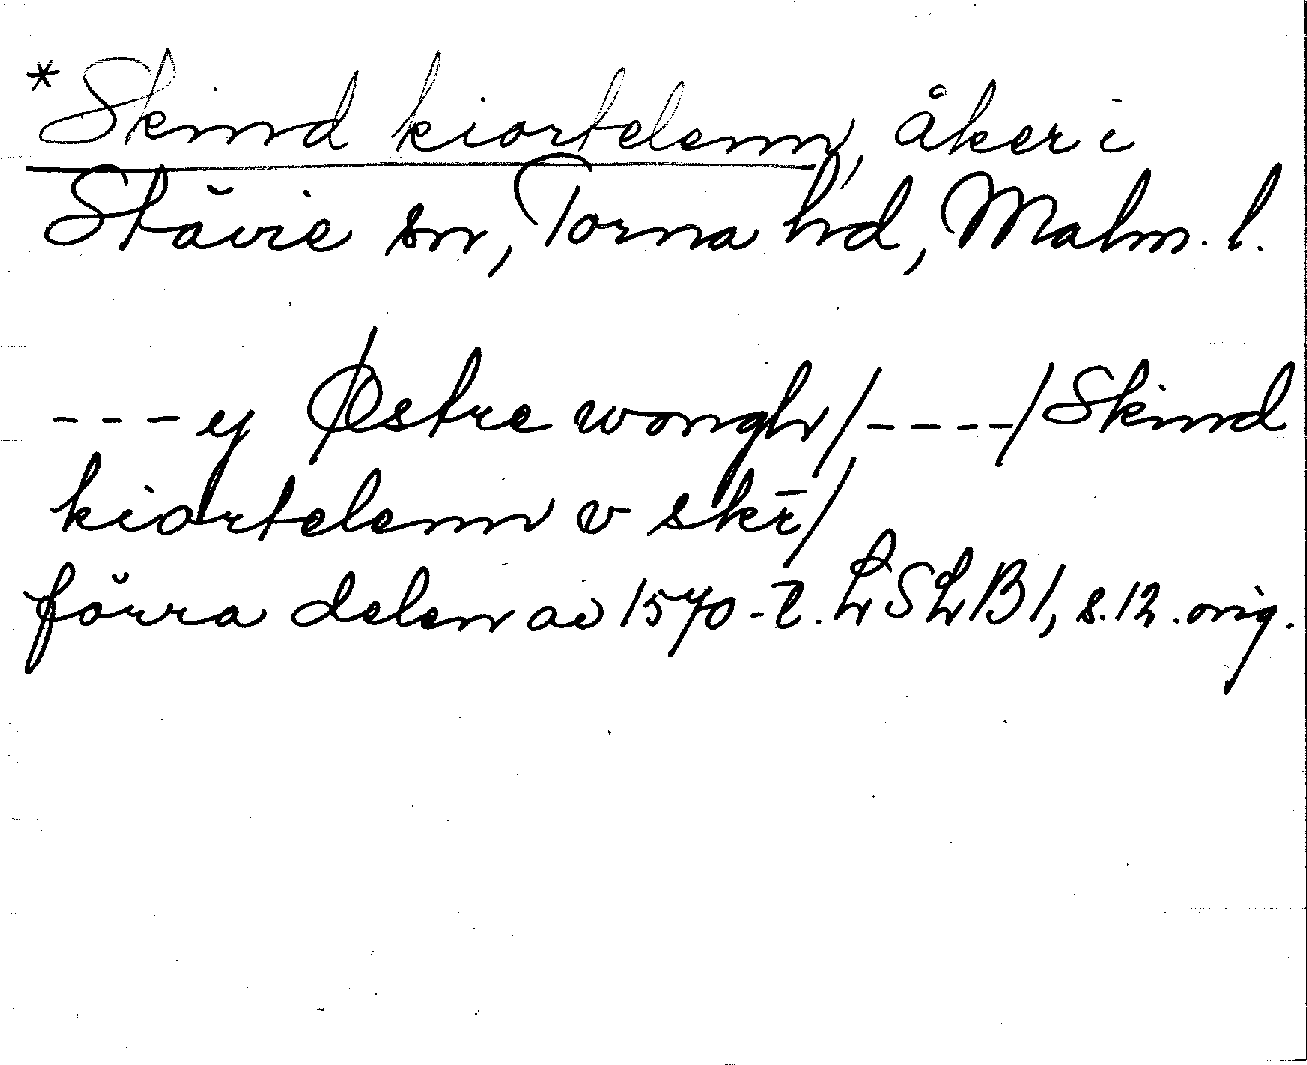 *Skind kiortelenn, åker i
Stävie sn, Torna hd, Malm. l.
---y Østre wongh/----/Skind
kiortelenn v skē/
förra delen av 1570-t. LSLB 1, s.12. orig.